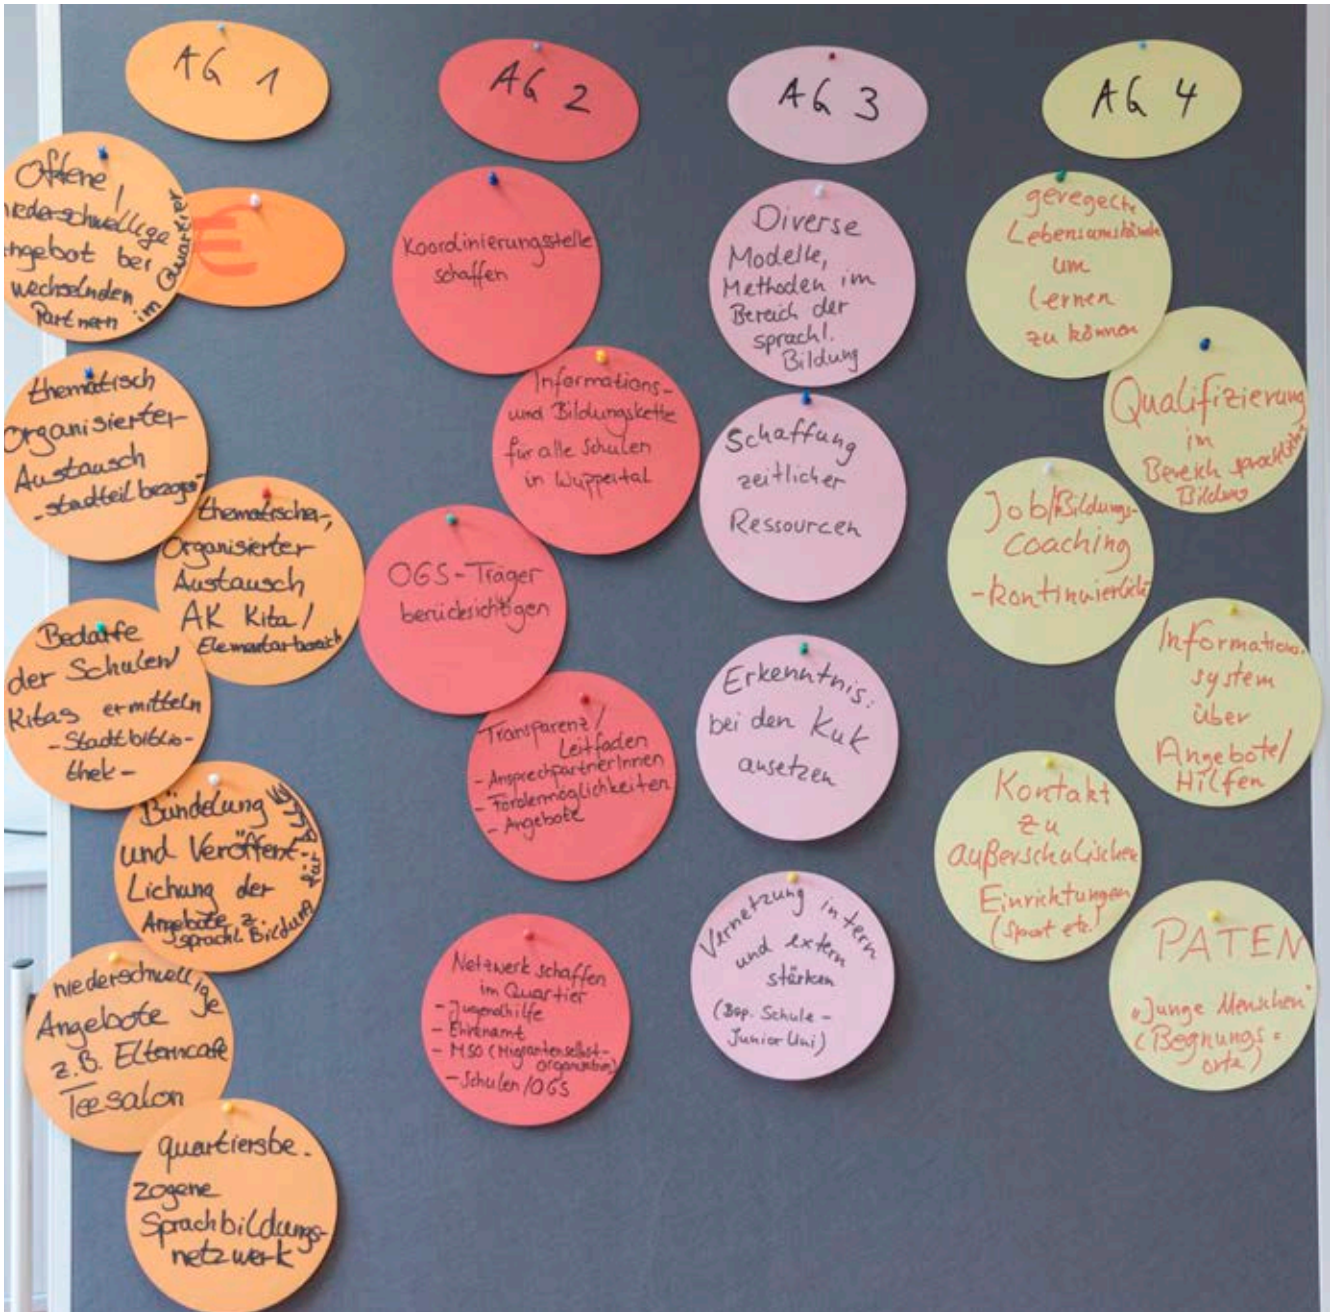 AG 1
Offene,
niederschwellige
Angebot bei
wechselnden
Partnern
im Quartier
€
thematisch
Organisierter
Austausch
- stadtteilbezogen-
thematischer,
Organisierter
Austausch
AK Kita/
Elementarbereich
Bedarfe
der Schulen/
Kitas ermitteln
- Stadtbiblio-
thek -
Bündelung
und Veröffent-
lichung der
Angebote z.
sprachl. Bildung
für ALLE
niederschwellige
Angebote
z.B. Elterncafe
Teesalon
quartiersbe-
zogene
Sprachbildungs-
netzwerk
AG 2
Koordinierungsstelle
schaffen
Informations-
und Bildungskette
für alle Schulen
in Wuppertal
OGS-Träger
berücksichtigen
Transparenz/
Leitfaden
- AnsprechpartnerInnen
- Fördermöglichkeiten
- Angebote
Netzwerk schaffen
im Quartier
- Jugendhilfe
- Ehrenamt
- MSO (Migrantenselbst-
organisation)
- Schulen/OGS
AG 3
Diverse
Modelle,
Methoden im
Bereich der
sprachl.
Bildung
Schaffung
zeitlicher
Ressourcen
Erkenntnis:
bei den KuK
ansetzen
Vernetzung intern
und extern
stärken
(Bsp. Schule -
Junior Uni)
AG 4
geregelte
Lebensumstände
um
lernen
zu können
Qualifizierung
im
Bereich sprachliche
Bildung
Job/Bildungs-
coaching
- kontinuierlich
Informations-
system
über
Angebote/
Hilfen
Kontakt
zu
außerschulischen
Einrichtungen
(Sport etc.)
PATEN
"Junge Menschen"
(Begnungs-
orte)